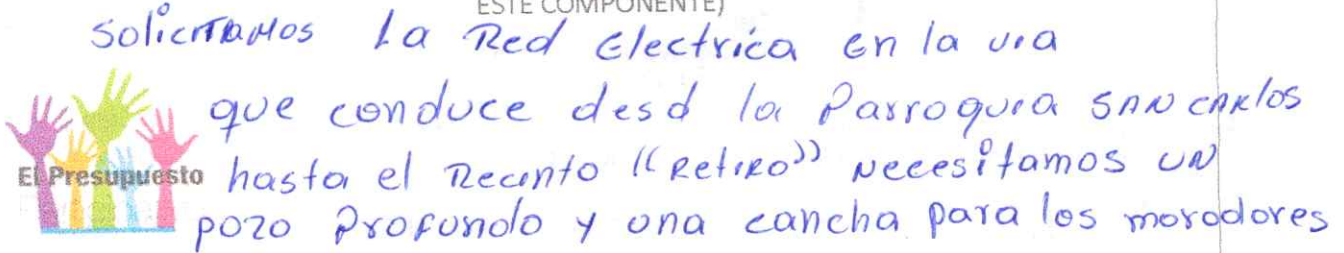 ESTE COMPONENTE)
Solicitamos La Red Electrica en la via
que conduce desd la Parroquia SAN CARLOS
El Presupuesto
hasta el Recinto "Retiro" Necesitamos UN
pozo Profundo y una cancha para los moradores